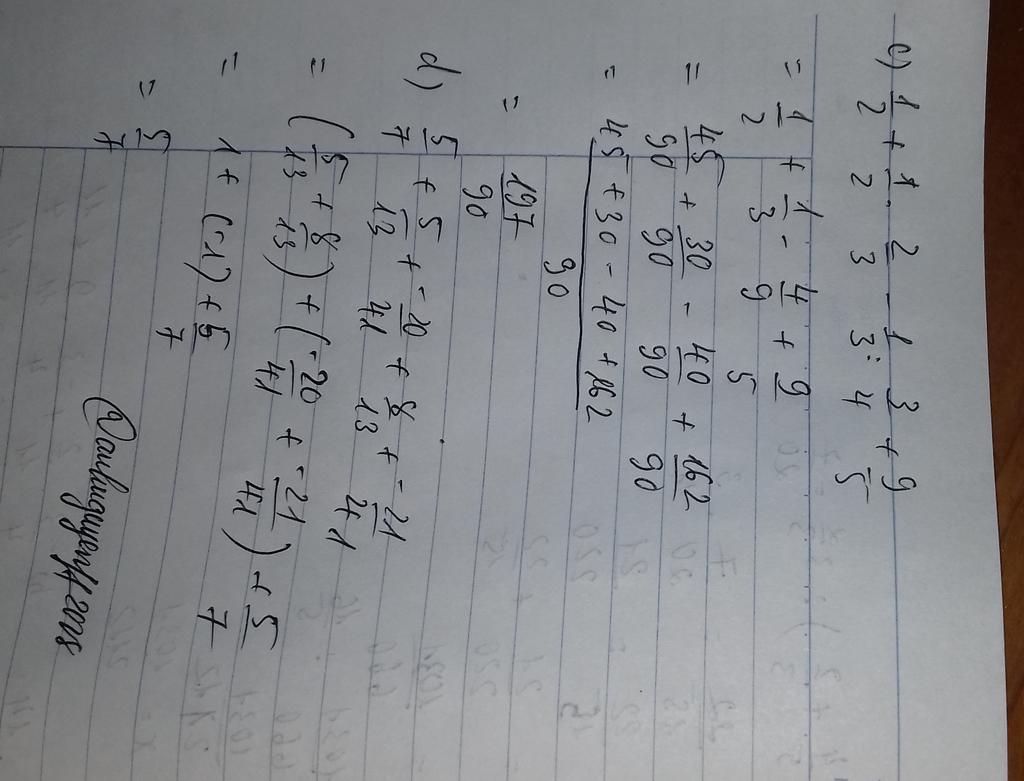 c) 1/2 + 1/2 . 2/3 - 1/3 : 3/4 + 9/5
= 1/2 + 1/3 - 4/9 + 9/5
= 45/90 + 30/90 - 40/90 + 162/90
= (45 + 30 - 40 + 162)/90
= 197/90
d) 5/7 + 5/13 + -20/41 + 8/13 + -21/41
= (5/13 + 8/13) + (-20/41 + -21/41) + 5/7
= 1 + (-1) + 5/7
= 5/7